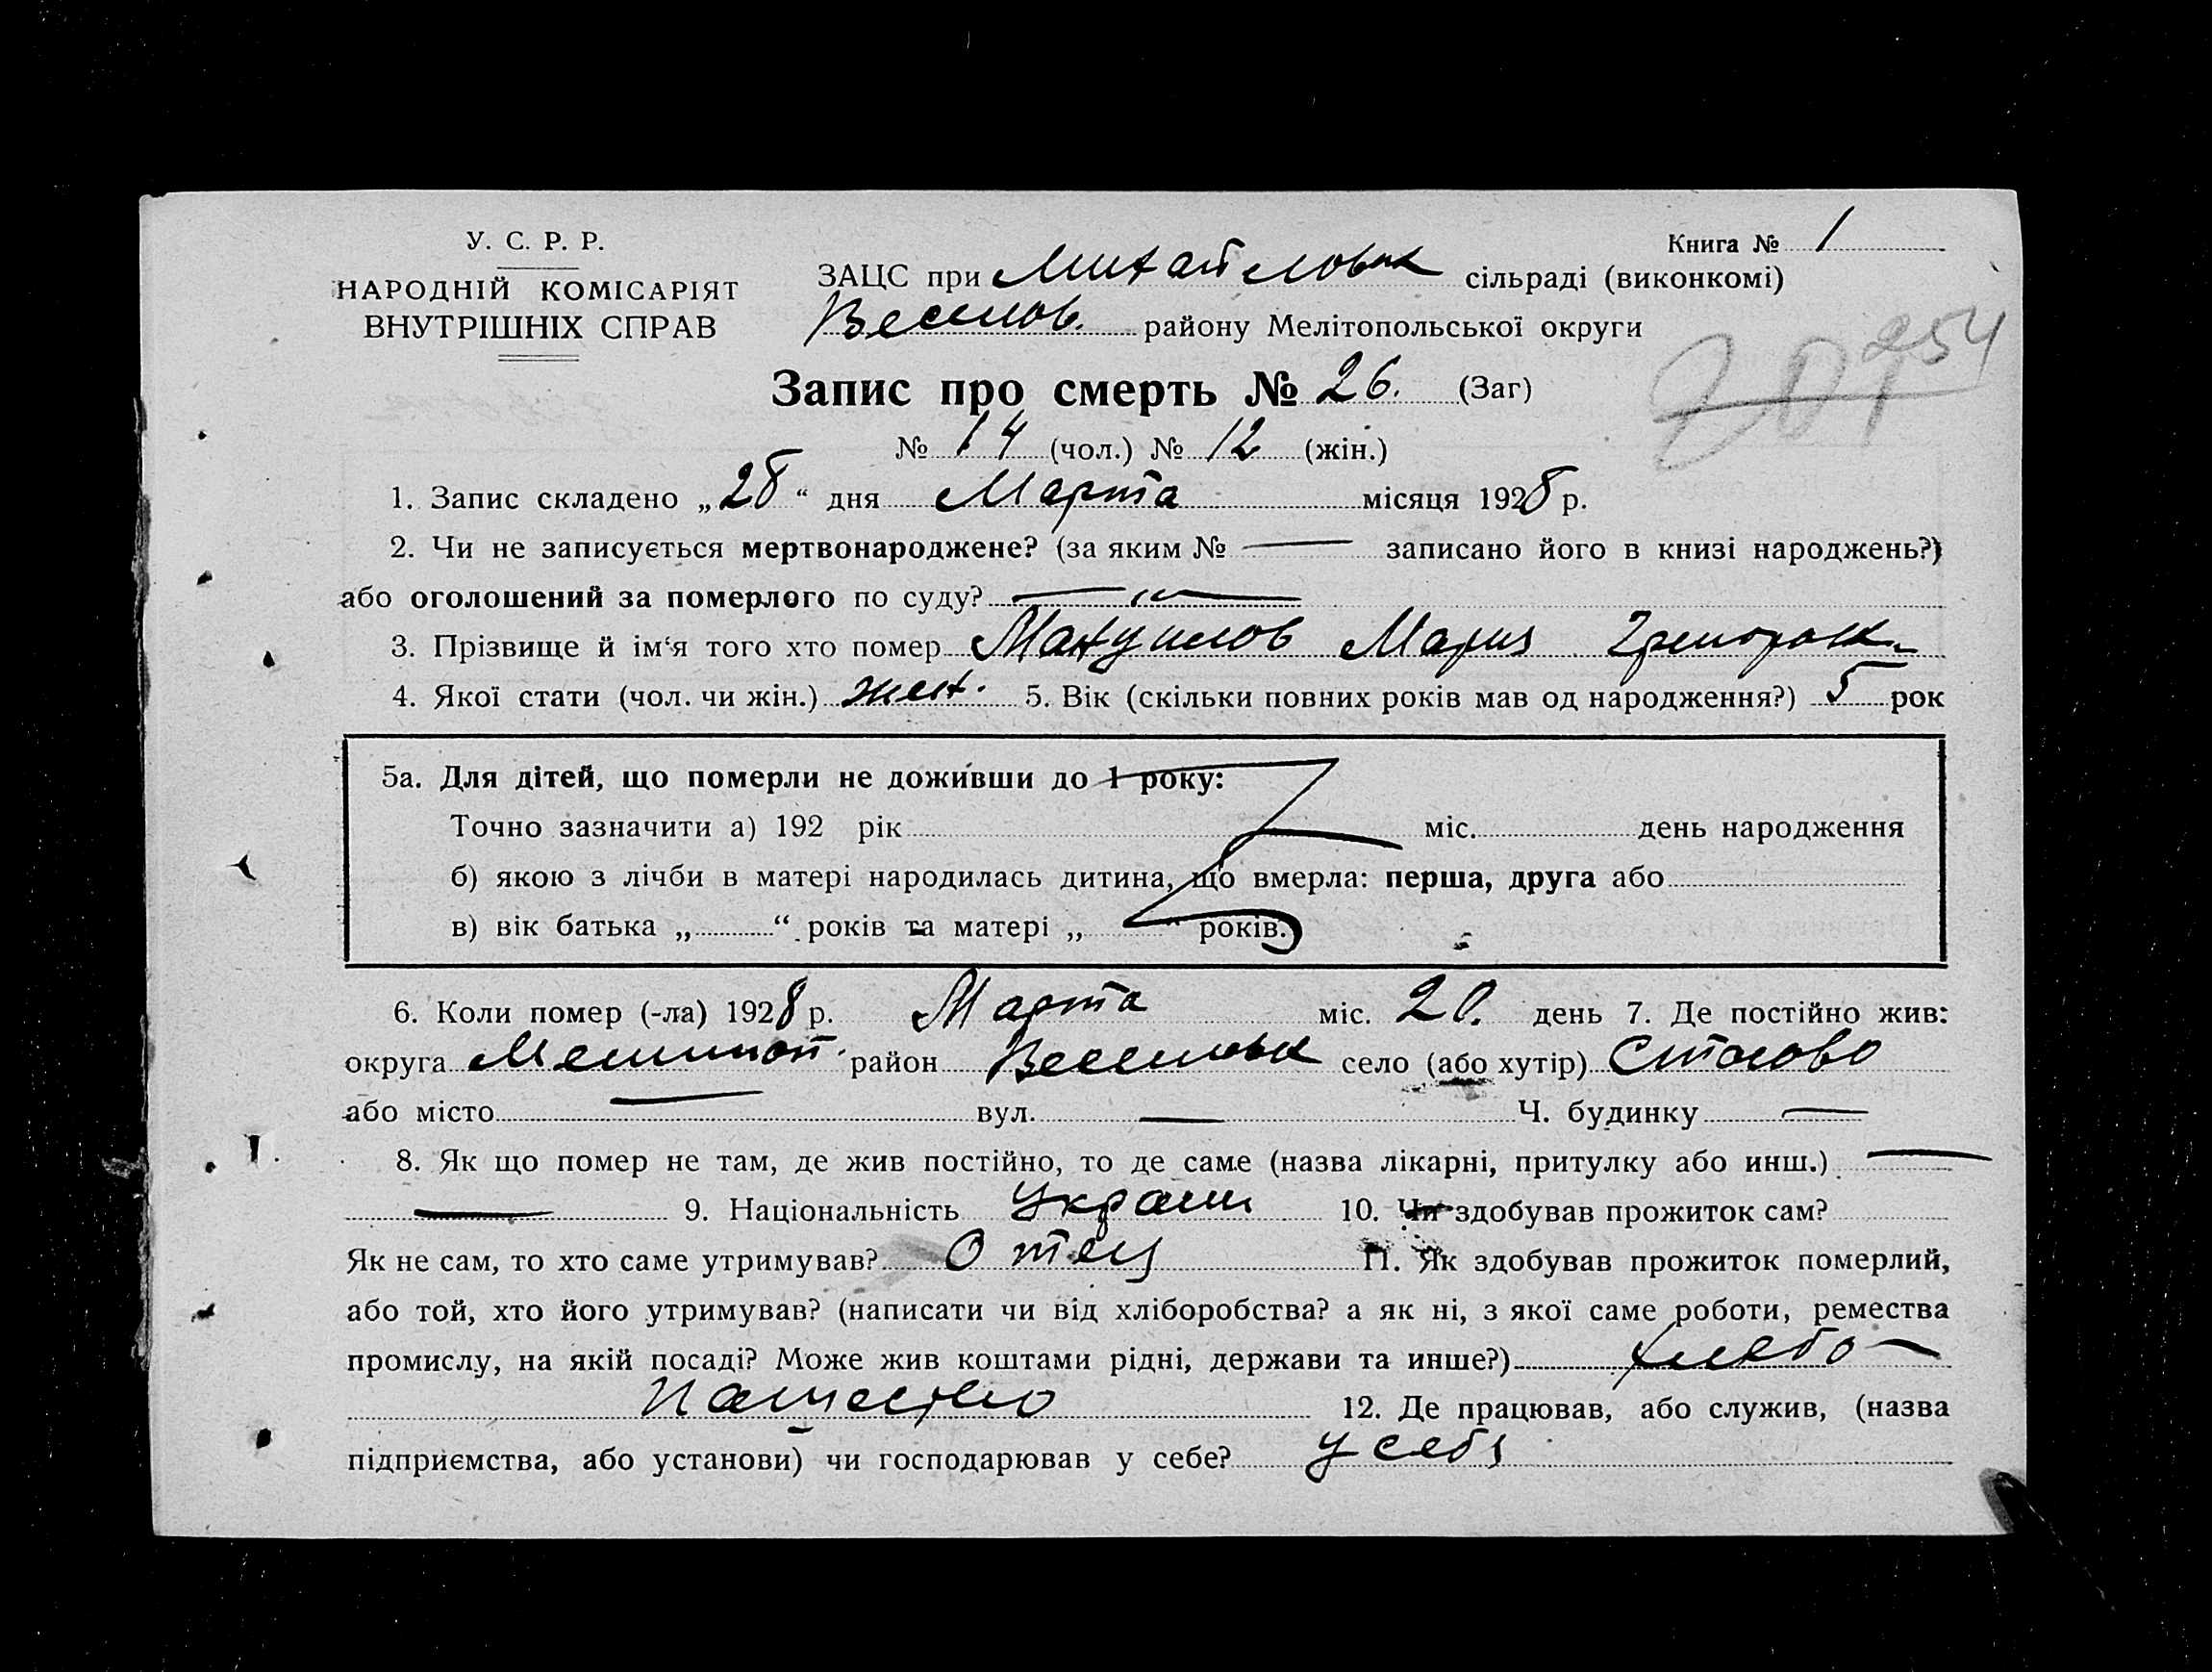 У. С. Р. Р.
НАРОДНІЙ КОМІСАРІЯТ
ВНУТРІШНІХ СПРАВ
Книга № 1
ЗАЦС при Михайловск сільраді (виконкомі)
Веселов. району Мелітопольської округи
254
201
Запис про смерть № 26. (Заг)
№ 14 (чол.) № 12 (жін.)
1. Запис складено „28“ дня Марта місяця 1928 р.
2. Чи не записується мертвонароджене? (за яким № — записано його в книзі народжень?)
або оголошений за померлого по суду? —
3. Прізвище й ім‘я того хто помер Мария
4. Якої стати (чол. чи жін.) жен. 5. Вік (скільки повних років мав од народження?) 5 рок
5а. Для дітей, що померли не доживши до 1 року:
Точно зазначити а) 192 рік міс. день народження
б) якою з лічби в матері народилась дитина, що вмерла: перша, друга або
в) вік батька „ “ років та матері „ “ років.
6. Коли помер (-ла) 1928 р. Марта міс. 20. день 7. Де постійно жив:
округа Мелитоп. район Веселовск село (або хутір)
або місто — вул. — Ч. будинку —
8. Як що помер не там, де жив постійно, то де саме (назва лікарні, притулку або инш.) —
— 9. Національність Украин 10. Чи здобував прожиток сам?
Як не сам, то хто саме утримував? Отец 11. Як здобував прожиток померлий,
або той, хто його утримував? (написати чи від хліборобства? а як ні, з якої саме роботи, ремества
промислу, на якій посаді? Може жив коштами рідні, держави та инше?) хлебо-
пашество 12. Де працював, або служив, (назва
підприємства, або установи) чи господарював у себе? у себя